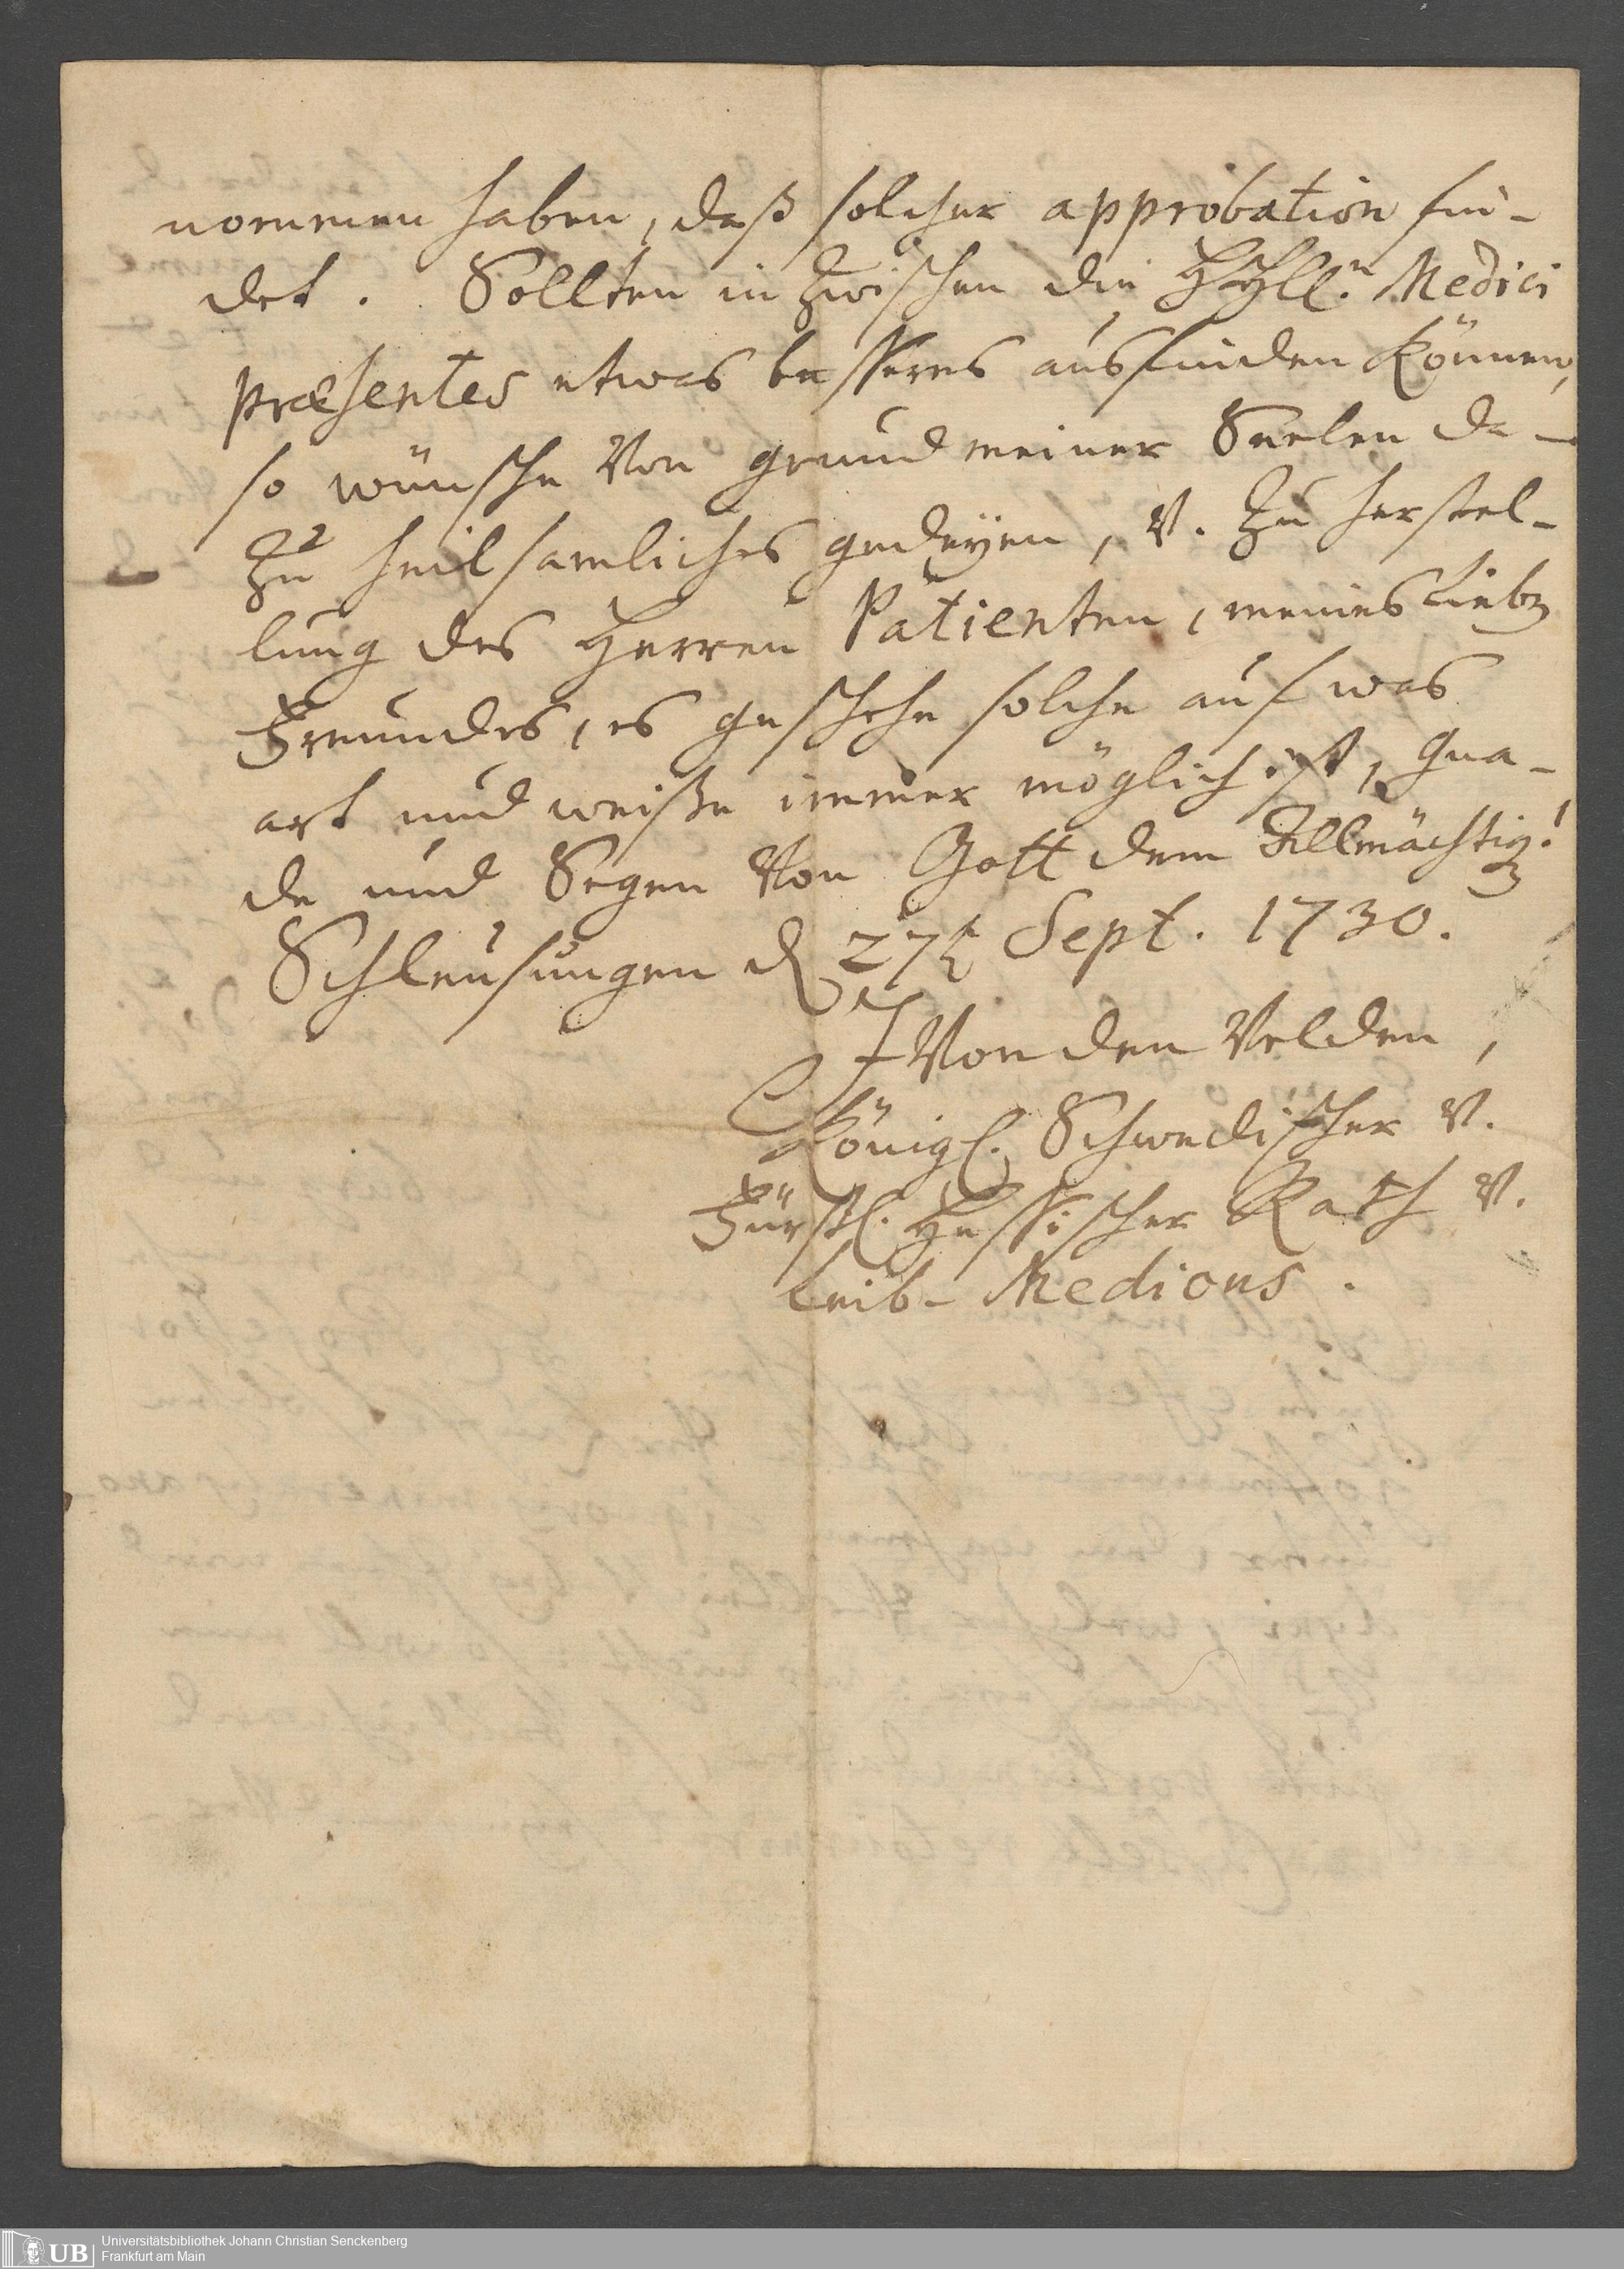 nommen haben, daß solcher approbation fin-
det. Sollten in zwischen die HHll.n Medici
præsentes etwas besseres ausfinden können,
so wünsche von grund meiner Seelen da-
zu heilsamliches gedeyen, v. zu herstel-
lung des Herren Patienten, meines liebn
Freundes, es geschehe solche auf was
art und weiße immer möglich ist, Gna-
de und Segen von Gott dem Allmächtig!
Schleusungen d 27t Sept. 1730.
J Von den Velden,
Königl. Schwedischer v.
Fürstl. Hessischer Rath v.
Leib-Medicus.
UB Universitätsbibliothek Johann Christian Senckenberg
Frankfurt am Main